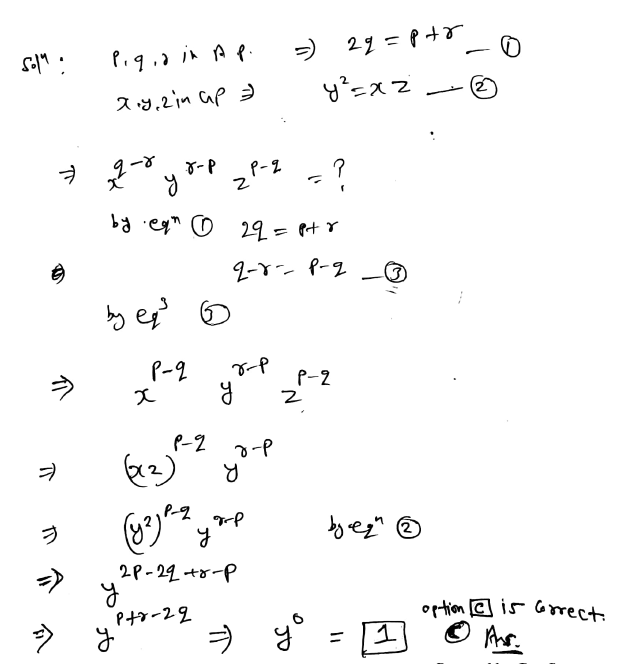 Solⁿ : p, q, r in A P. ⇒ 2q = p + r — ①
x, y, z in GP ⇒ y² = x z — ②
⇒ x^{q-r} y^{r-p} z^{p-q} = ?
by eqⁿ ① 2q = p + r
q - r = p - q — ③
by eq³ ③
⇒ x^{p-q} y^{r-p} z^{p-q}
⇒ (xz)^{p-q} y^{r-p}
⇒ (y²)^{p-q} y^{r-p} by eqⁿ ②
⇒ y^{2p-2q+r-p}
⇒ y^{p+r-2q} ⇒ y⁰ = 1 option C is correct.
Ans.